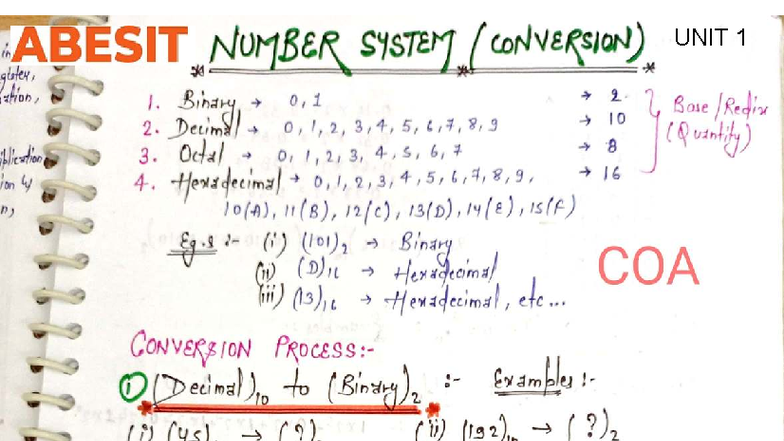 ABESIT NUMBER SYSTEM (CONVERSION) UNIT 1
1. Binary → 0, 1 → 2
2. Decimal → 0, 1, 2, 3, 4, 5, 6, 7, 8, 9 → 10
3. Octal → 0, 1, 2, 3, 4, 5, 6, 7 → 8
4. Hexadecimal → 0, 1, 2, 3, 4, 5, 6, 7, 8, 9, → 16
10(A), 11(B), 12(C), 13(D), 14(E), 15(F)
Base/Redix
(Quantity)
Eg.s :- (i) (101)₂ → Binary
(ii) (D)₁₆ → Hexadecimal
(iii) (13)₁₆ → Hexadecimal, etc...
COA
CONVERSION PROCESS:-
① (Decimal)₁₀ to (Binary)₂ :- Examples :-
(i) (45) → (?) (ii) (192)₁₀ → (?)₂